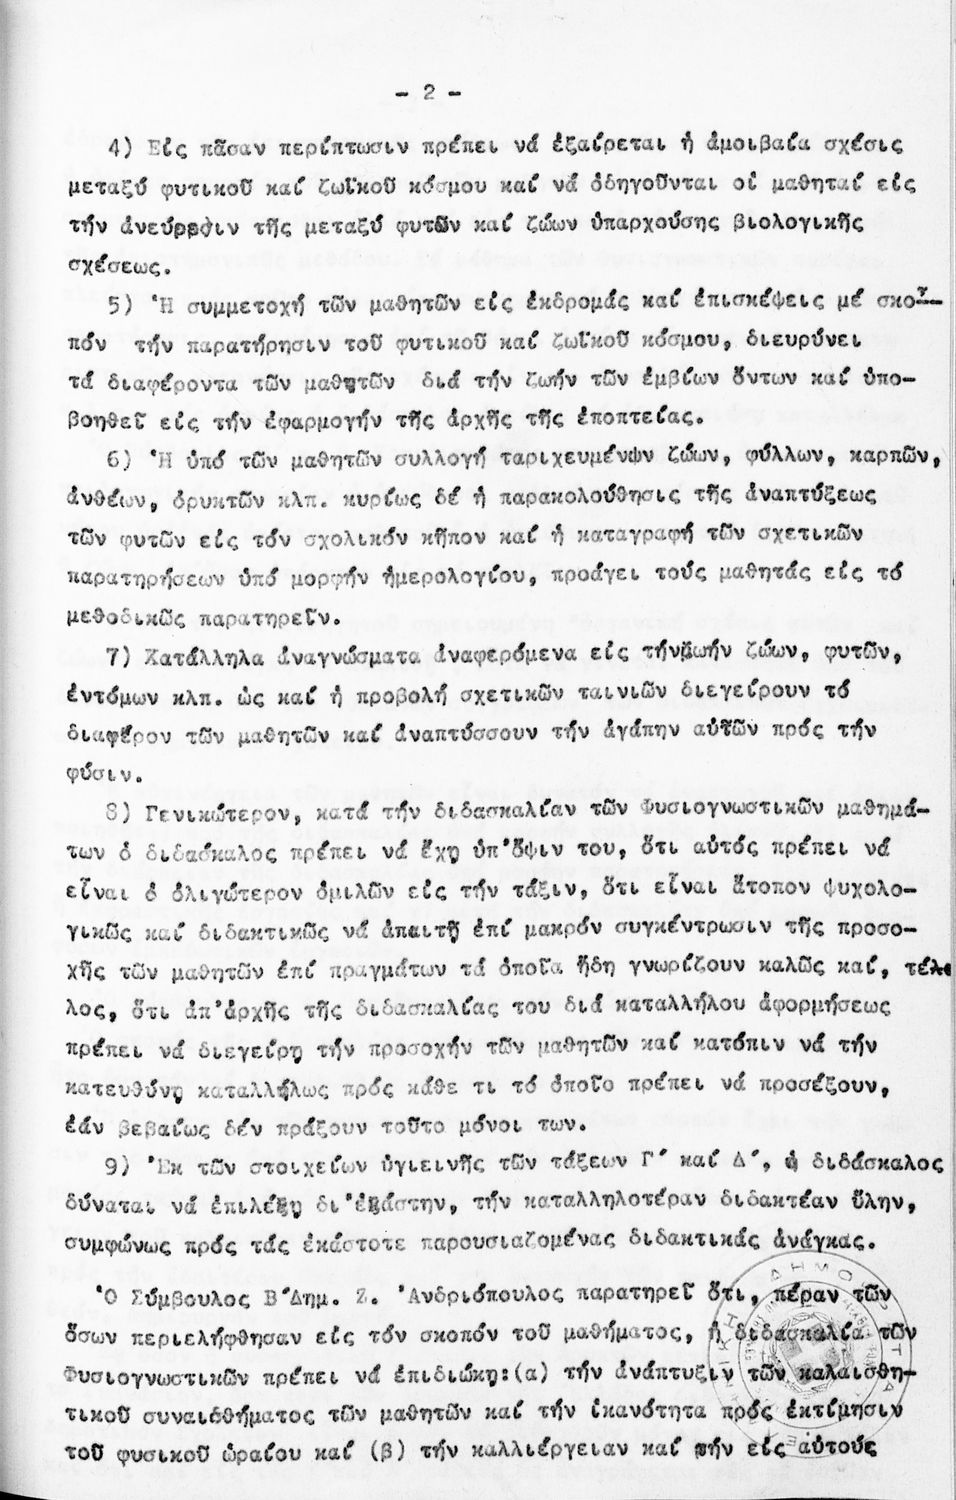 - 2 -
4) Εἰς πᾶσαν περίπτωσιν πρέπει νά ἐξαίρεται ἡ ἀμοιβαία σχέσις
μεταξύ φυτικοῦ καί ζωϊκοῦ κόσμου καί νά ὁδηγοῦνται οἱ μαθηταί εἰς
τήν ἀνεύρεσιν τῆς μεταξύ φυτῶν καί ζώων ὑπαρχούσης βιολογικῆς
σχέσεως.
5) Ἡ συμμετοχή τῶν μαθητῶν εἰς ἐκδρομάς καί ἐπισκέψεις μέ σκο-
πόν τήν παρατήρησιν τοῦ φυτικοῦ καί ζωϊκοῦ κόσμου, διευρύνει
τά διαφέροντα τῶν μαθητῶν διά τήν ζωήν τῶν ἐμβίων ὄντων καί ὑπο-
βοηθεῖ εἰς τήν ἐφαρμογήν τῆς ἀρχῆς τῆς ἐποπτείας.
6) Ἡ ὑπό τῶν μαθητῶν συλλογή ταριχευμένων ζώων, φύλλων, καρπῶν,
ἀνθέων, ὀρυκτῶν κλπ. κυρίως δέ ἡ παρακολούθησις τῆς ἀναπτύξεως
τῶν φυτῶν εἰς τόν σχολικόν κῆπον καί ἡ καταγραφή τῶν σχετικῶν
παρατηρήσεων ὑπό μορφήν ἡμερολογίου, προάγει τούς μαθητάς εἰς τό
μεθοδικῶς παρατηρεῖν.
7) Κατάλληλα ἀναγνώσματα ἀναφερόμενα εἰς τήν ζωήν ζώων, φυτῶν,
ἐντόμων κλπ. ὡς καί ἡ προβολή σχετικῶν ταινιῶν διεγείρουν τό
διαφέρον τῶν μαθητῶν καί ἀναπτύσσουν τήν ἀγάπην αὐτῶν πρός τήν
φύσιν.
8) Γενικώτερον, κατά τήν διδασκαλίαν τῶν Φυσιογνωστικῶν μαθημά-
των ὁ διδάσκαλος πρέπει νά ἔχῃ ὑπ'ὄψιν του, ὅτι αὐτός πρέπει νά
εἶναι ὁ ὀλιγώτερον ὁμιλῶν εἰς τήν τάξιν, ὅτι εἶναι ἄτοπον ψυχολο-
γικῶς καί διδακτικῶς νά ἀπαιτῇ ἐπί μακρόν συγκέντρωσιν τῆς προσο-
χῆς τῶν μαθητῶν ἐπί πραγμάτων τά ὁποῖα ἤδη γνωρίζουν καλῶς καί, τέλο
λος, ὅτι ἀπ'ἀρχῆς τῆς διδασκαλίας του διά καταλλήλου ἀφορμήσεως
πρέπει νά διεγείρῃ τήν προσοχήν τῶν μαθητῶν καί κατόπιν νά τήν
κατευθύνῃ καταλλήλως πρός κάθε τι τό ὁποῖο πρέπει νά προσέξουν,
ἐάν βεβαίως δέν πράξουν τοῦτο μόνοι των.
9) Ἐκ τῶν στοιχείων ὑγιεινῆς τῶν τάξεων Γ΄ καί Δ΄, ὁ διδάσκαλος
δύναται νά ἐπιλέξῃ δι'ἑκάστην, τήν καταλληλοτέραν διδακτέαν ὕλην,
συμφώνως πρός τάς ἑκάστοτε παρουσιαζομένας διδακτικάς ἀνάγκας.
Ὁ Σύμβουλος Β΄Δημ. Ζ. Ἀνδριόπουλος παρατηρεῖ ὅτι, πέραν τῶν
ὅσων περιελήφθησαν εἰς τόν σκοπόν τοῦ μαθήματος, ἡ διδασκαλία τῶν
Φυσιογνωστικῶν πρέπει νά ἐπιδιώκῃ:(α) τήν ἀνάπτυξιν τῶν καλαισθη-
τικοῦ συναισθήματος τῶν μαθητῶν καί τήν ἱκανότητα πρός ἐκτίμησιν
τοῦ φυσικοῦ ὡραίου καί (β) τήν καλλιέργειαν καί τήν εἰς αὐτούς